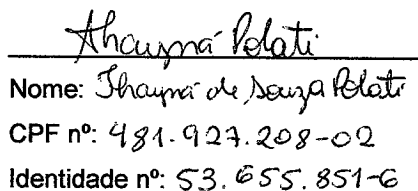 Thauyná Polati
Nome: Thauyná de Souza Polati
CPF nº: 481.927.208-02
Identidade nº: 53.655.851-6